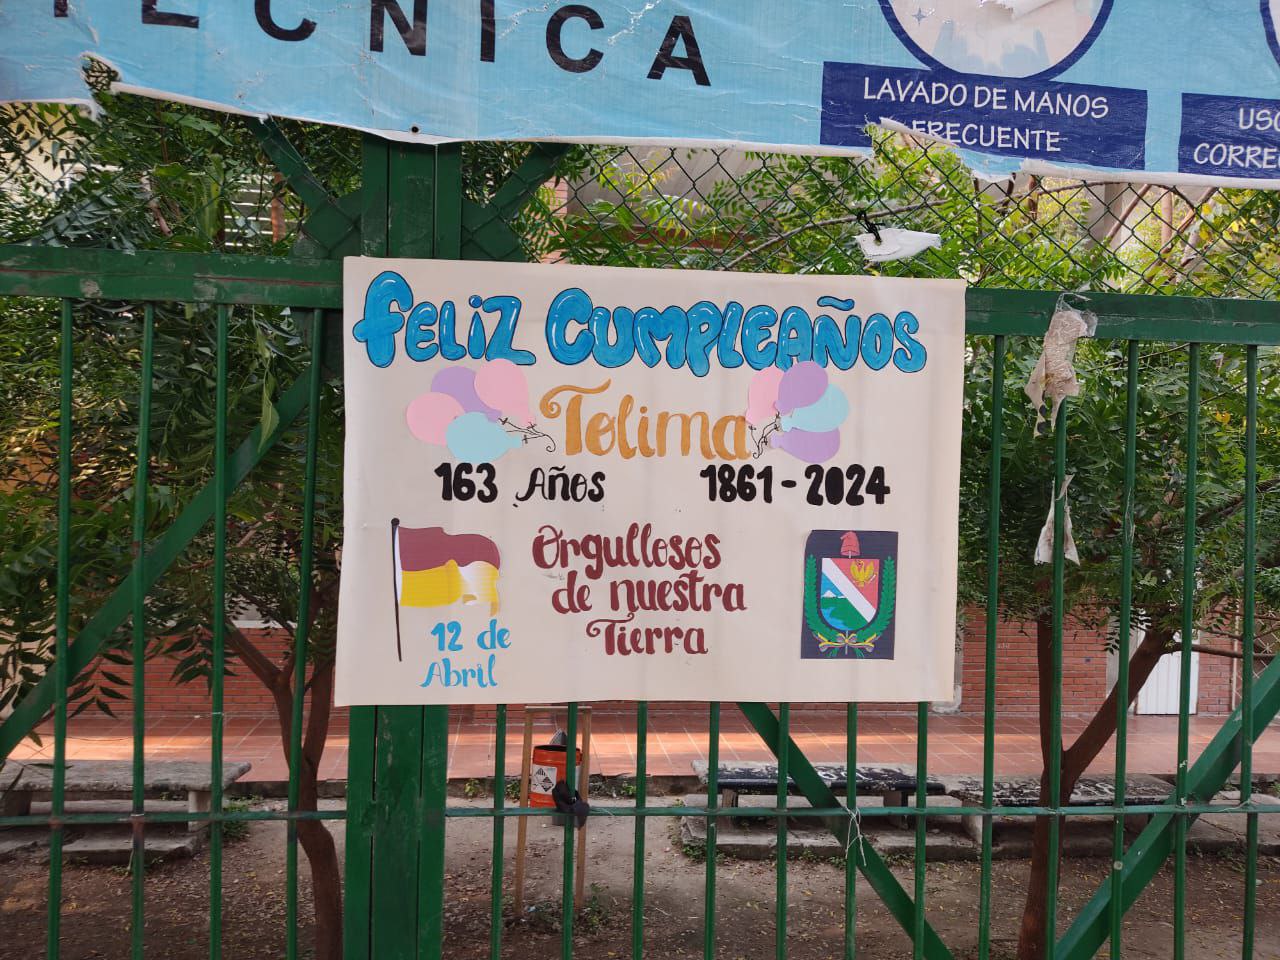 TÉCNICA
LAVADO DE MANOS
FRECUENTE
USO
CORRE
FELIZ CUMPLEAÑOS
Tolima
163 Años 1861-2024
Orgullosos
de nuestra
Tierra
12 de
Abril